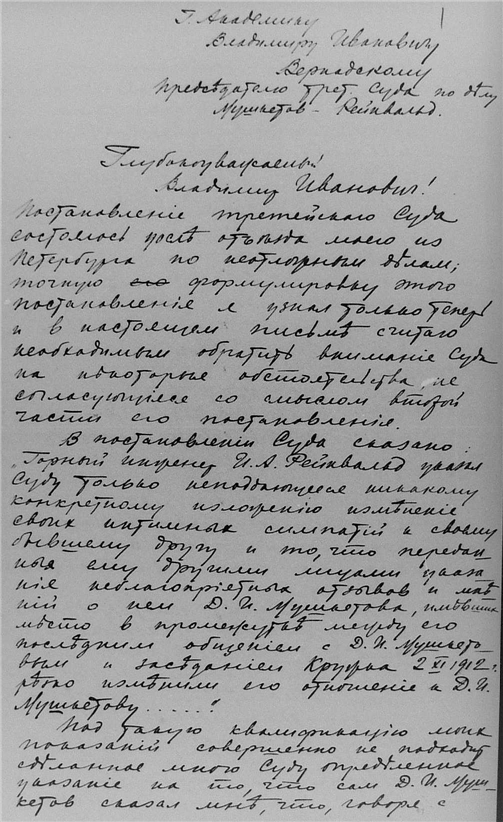 Г. Академику
Владимиру Ивановичу
Вернадскому
Предсѣдателю трет. Суда по дѣлу
Мушкетов - Рейнвальд.
Глубокоуважаемый
Владимир Иванович!
Постановленіе третейскаго Суда
состоялось послѣ отъѣзда моего из
Петербурга по неотложным дѣлам;
точную формулировку этого
постановленія я узнал только теперь
и в настоящем письмѣ считаю
необходимым обратить вниманіе Суда
на нѣкоторые обстоятельства, не
согласующіеся со смыслом второй
части его постановленія.
В постановленіи Суда сказано:
"Горный инженер И.А. Рейнвальд указал
Суду только неподдающееся никакому
конкретному изложенію измѣненіе
своих интимных симпатій к своему
бывшему другу и то, что передан-
ныя ему другими лицами указа-
нія неблагопріятных отзывов и мнѣ-
ній о нем Д. И. Мушкетова, имѣвших
мѣсто в промежуткѣ между его
послѣдним общеніем с Д. И. Мушкето-
вым и засѣданіем Кружка 2 XI 1912 г.
рѣзко измѣнили его отношеніе к Д. И.
Мушкетову......"
Под такую квалификацію моих
показаній совершенно не подходит
сдѣланное мною Суду опредѣленное
указаніе на то, что сам Д. И. Муш-
кетов сказал мнѣ, что, говоря с